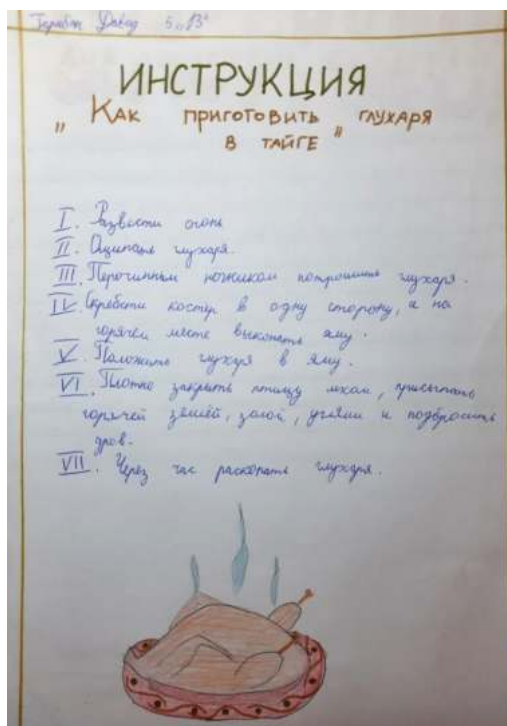 Давид 5 „В"
ИНСТРУКЦИЯ
„ Как приготовить глухаря
в тайге "
I. Развести огонь
II. Ощипать глухаря.
III. Перочинным ножиком потрошить глухаря.
IV. Скребсти костёр в одну сторону, и на
горячем месте выкопать яму.
V. Положить глухаря в яму.
VI. Плотно закрыть птицу мхом, присыпать
горячей землёй, золой, углями и подбросить
дров.
VII. Через час раскопать глухаря.